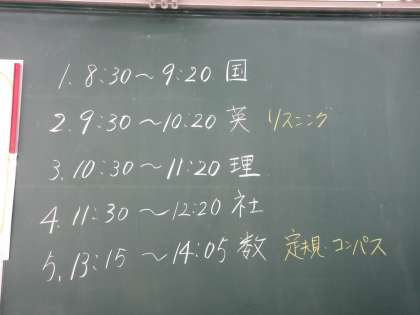 1. 8:30～9:20 国
2. 9:30～10:20 英 リスニング
3. 10:30～11:20 理
4. 11:30～12:20 社
5. 13:15～14:05 数 定規・コンパス